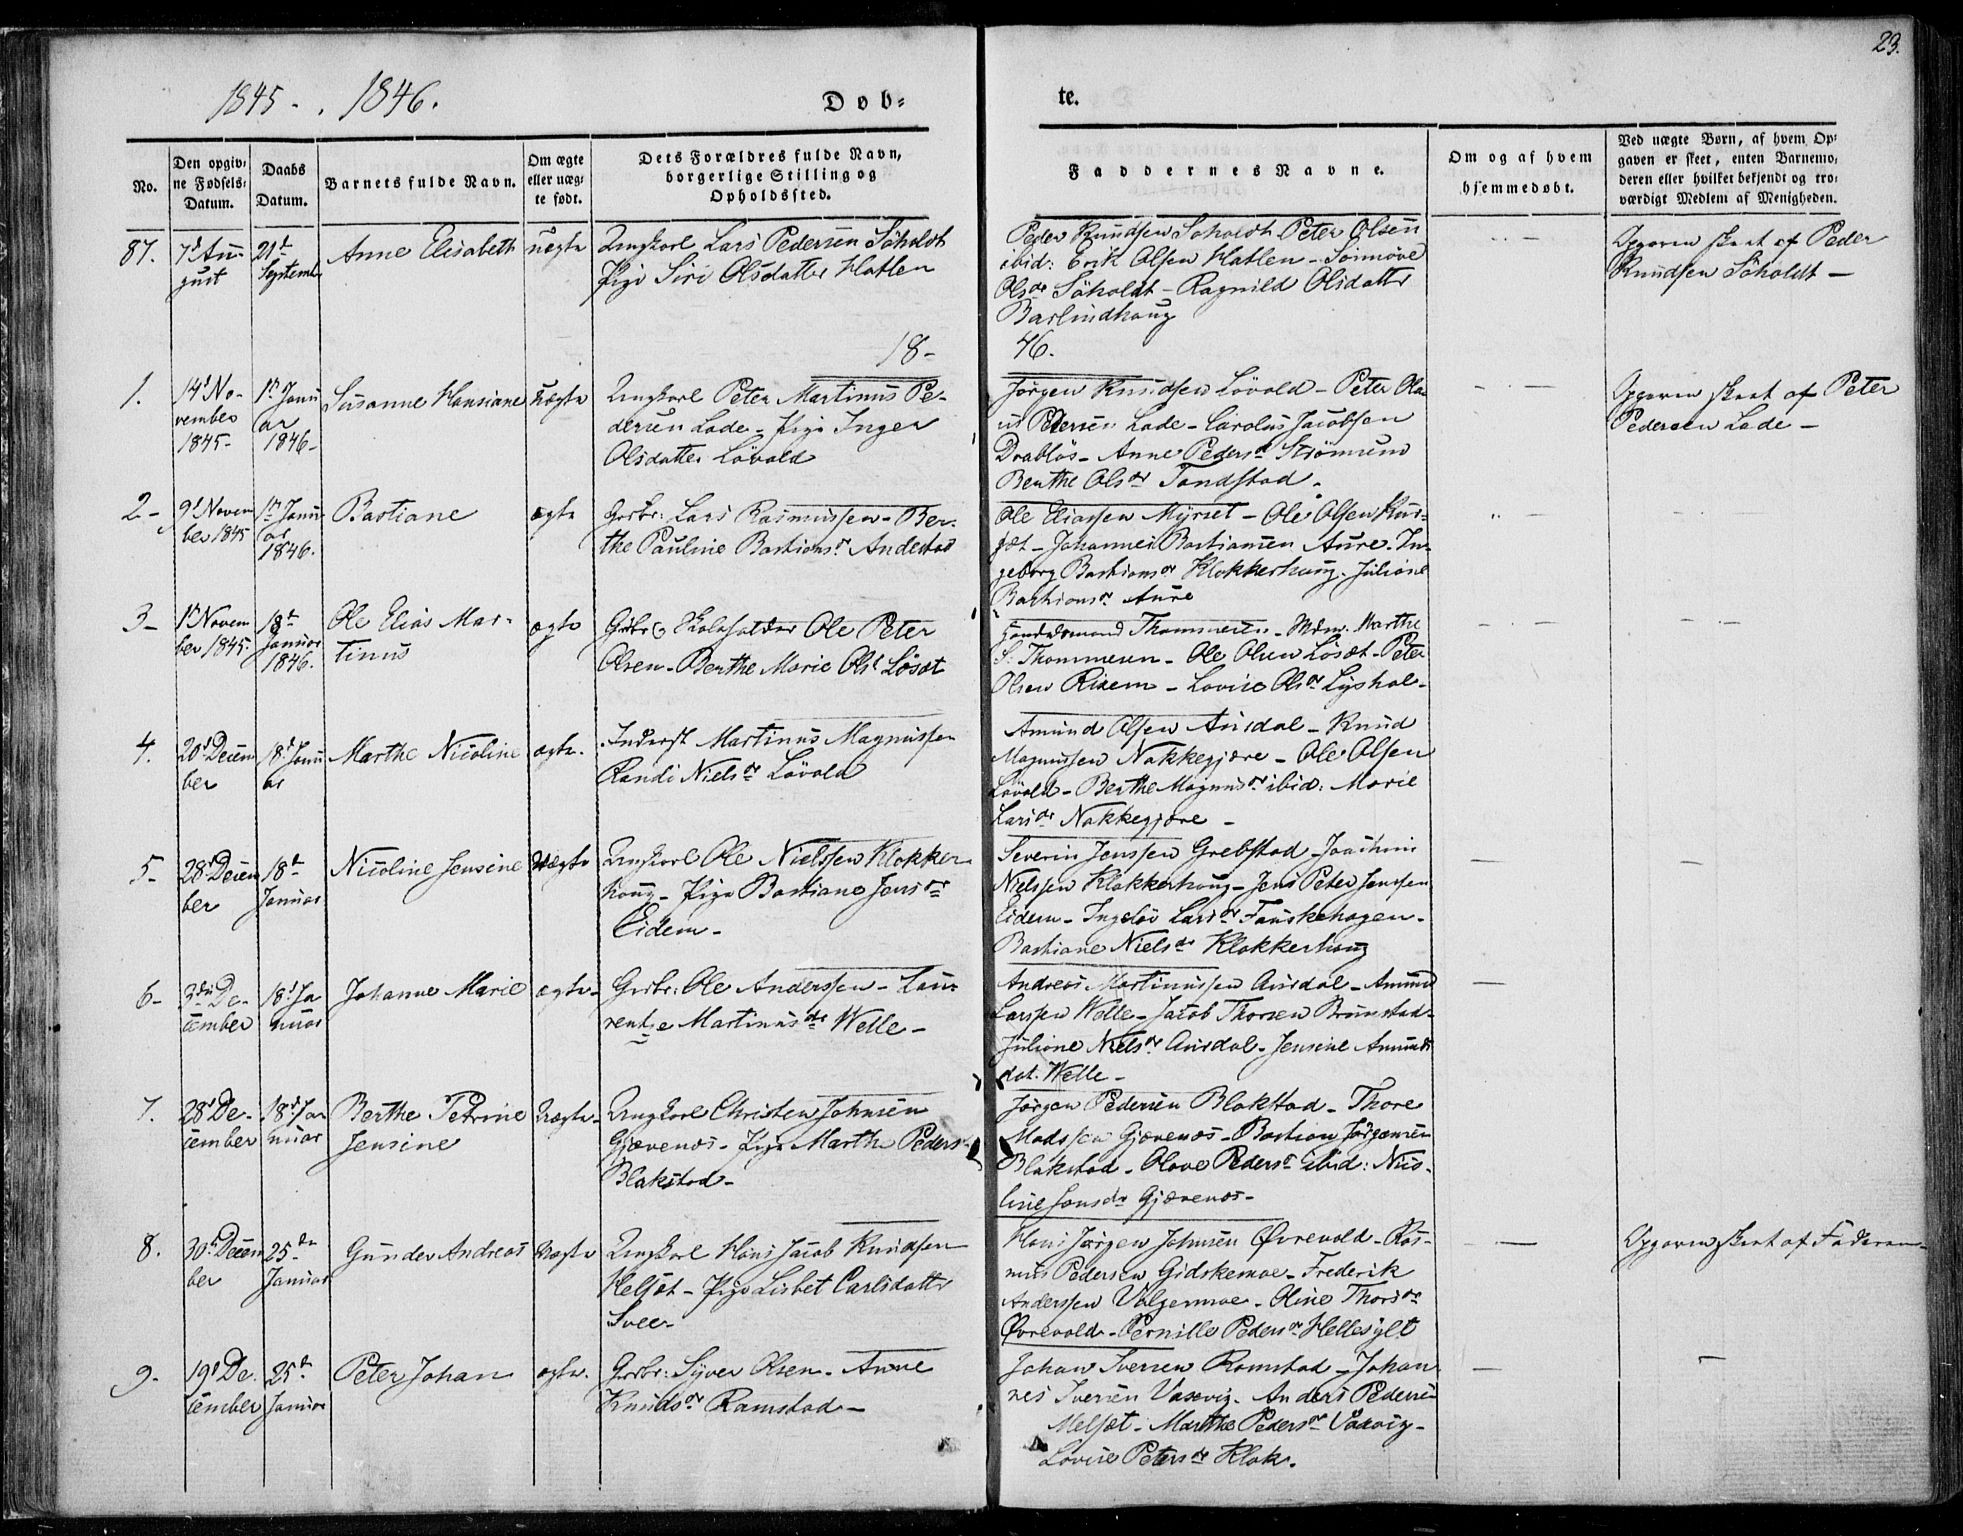 23.
1845 - . 1846.
Døb-
te.
No.
Den opgiv-
ne Fødsels-
Datum.
Daabs
Datum.
Barnets fulde Navn.
Om ægte
eller uæg-
te født.
Dets Forældres fulde Navn,
borgerlige Stilling og
Opholdssted.
Faddernes Navne.
Om og af hvem
hjemmedøbt.
Ved uægte Børn, af hvem Op-
gaven er skeet, enten Barnemo-
deren eller hvilket bekjendt og tro-
værdigt Medlem af Menigheden.
87.
7d Au-
gust
21d
Septemb.
Anne Elisabeth
uægte
Ungkarl Lars Pedersen Söholdt
Pige Siri Olsdatter Hatlen
Peder Knudsen Söholdt Peter Olsen
ibid: Erik Olsen Hatlen - Sönnöve
Olsdr Söholdt - Ragnild Olsdatter
Barlindhaug
Opgaven skeet af Peder
Knudsen Söholdt -
18-
46.
1.
14d No-
vember
1845-
1st Janu
ar
1846-
Susanne Hansiane
uægte
Ungkarl Peter Martinus Pe-
dersen Lade - Pige Inger
Olsdatter Lövold
Jörgen Knudsen Lövold - Peter Ola-
us Pedersen Lade - Carolus Jacobsen
Drabløs - Anne Pedersd Strømmen
Berthe Olsdr Tandstad.
Opgaven skeet af Peter
Pedersen Lade -
2-
9d Novem
ber 1845
1st Janu
ar
1846.
Bastiane
ægte
Grbr: Lars Rasmussen - Ber-
the Pauline Bastiansdr Andestad
Ole Eliassen Myrset - Ole Olsen
Johannes Bastiansen Aure - In-
geborg Bastiansdr Klokkerhaug. Juliane
Bastiansdr Aure
3-
1st Novem
ber 1845.
18d
Januar
1846.
Ole Elias Mar-
tinus
ægte
Grbr og Skoleholder Ole Peter
Olsen - Berthe Marie Olsd Løsæt
Handelsmand Thommesen - Mdm. Marthe
S. Thommesen - Ole Olsen Løsæt - Peter
Olsen Risem - Lovise Olsdr Lyshol-
4.
20d Decem
ber
18d Janu
ar
Marthe Nicoline
ægte.
Inderst Martinus Magnussen
Randi Nielsdr Lövold
Amund Olsen Aursdal - Knud
Magnussen Nakkegjære - Ole Olsen
Lövold - Berthe Magnusdr ibid: Marie
Larsdr Nakkegjære -
5-
28d Decem
ber
18d
Januar
Nicoline Jensine
Uægte
Ungkarl Ole Nielssen Klokker-
haug - Pige Bastiane Jensdr
Eidem -
Severin Jenssen Grebstad - Joachim
Nielssen Klokkerhaug - Jens Peter Jenssen
Eidem - Ingeløv Larsdr Fauskehagen -
Bastiane Nielsdr Klokkerhaug
6-
3die De-
cember
18d Ja
nuar
Johanne Marie
ægte-
Grbr: Ole Anderssen - Lau-
rentze Martinusdr Welle -
Andreas Martinussen Aursdal - Amund
Larssen Welle - Jacob Thorsen Brunstad -
Juliane Nielsdr Aursdal - Jensine Amunds
dat. Welle -
7.
28d De-
cember
18d Ja
nuar
Berthe Petrine
Jensine
Uægte-
Ungkarl Christen Johnsen
Gjævenæs - Pige Marthe Pedersdr
Blakstad -
Jørgen Pedersen Blakstad - Thore
Madssen Gjævenæs - Bastian Jörgensen
Blakstad - Olave Pedersdr ibid: Nico-
line Jonsdr Gjævenæs -
8.
30te Decem
ber
25de
Januar
Gunder Andreas
Uægte
Ungkarl Hans Jacob Knudsen
Helsæt - Pige Lisbet Carlsdatter
Svee-
Hans Jørgen Johnsen Øvrevold - Ras-
mus Pedersen Gidskemoe - Frederik
Anderssen Valgermoe - Oline Thorsdr
Øvrevold - Pernille Pedersdr Hellesylt
Opgaven skeet af Faderen -
9-
19d De-
cember
25d
Januar
Peter Johan
ægte.
Grbr: Syver Olsen - Anne
Knudsdr Ramstad -
Johan Iversen Ramstad - Johan-
nes Iversen Vasvig - Anders Pedersen
Melsæt - Marthe Pedersdr Vasvig -
Lovise Petersdr Klok.